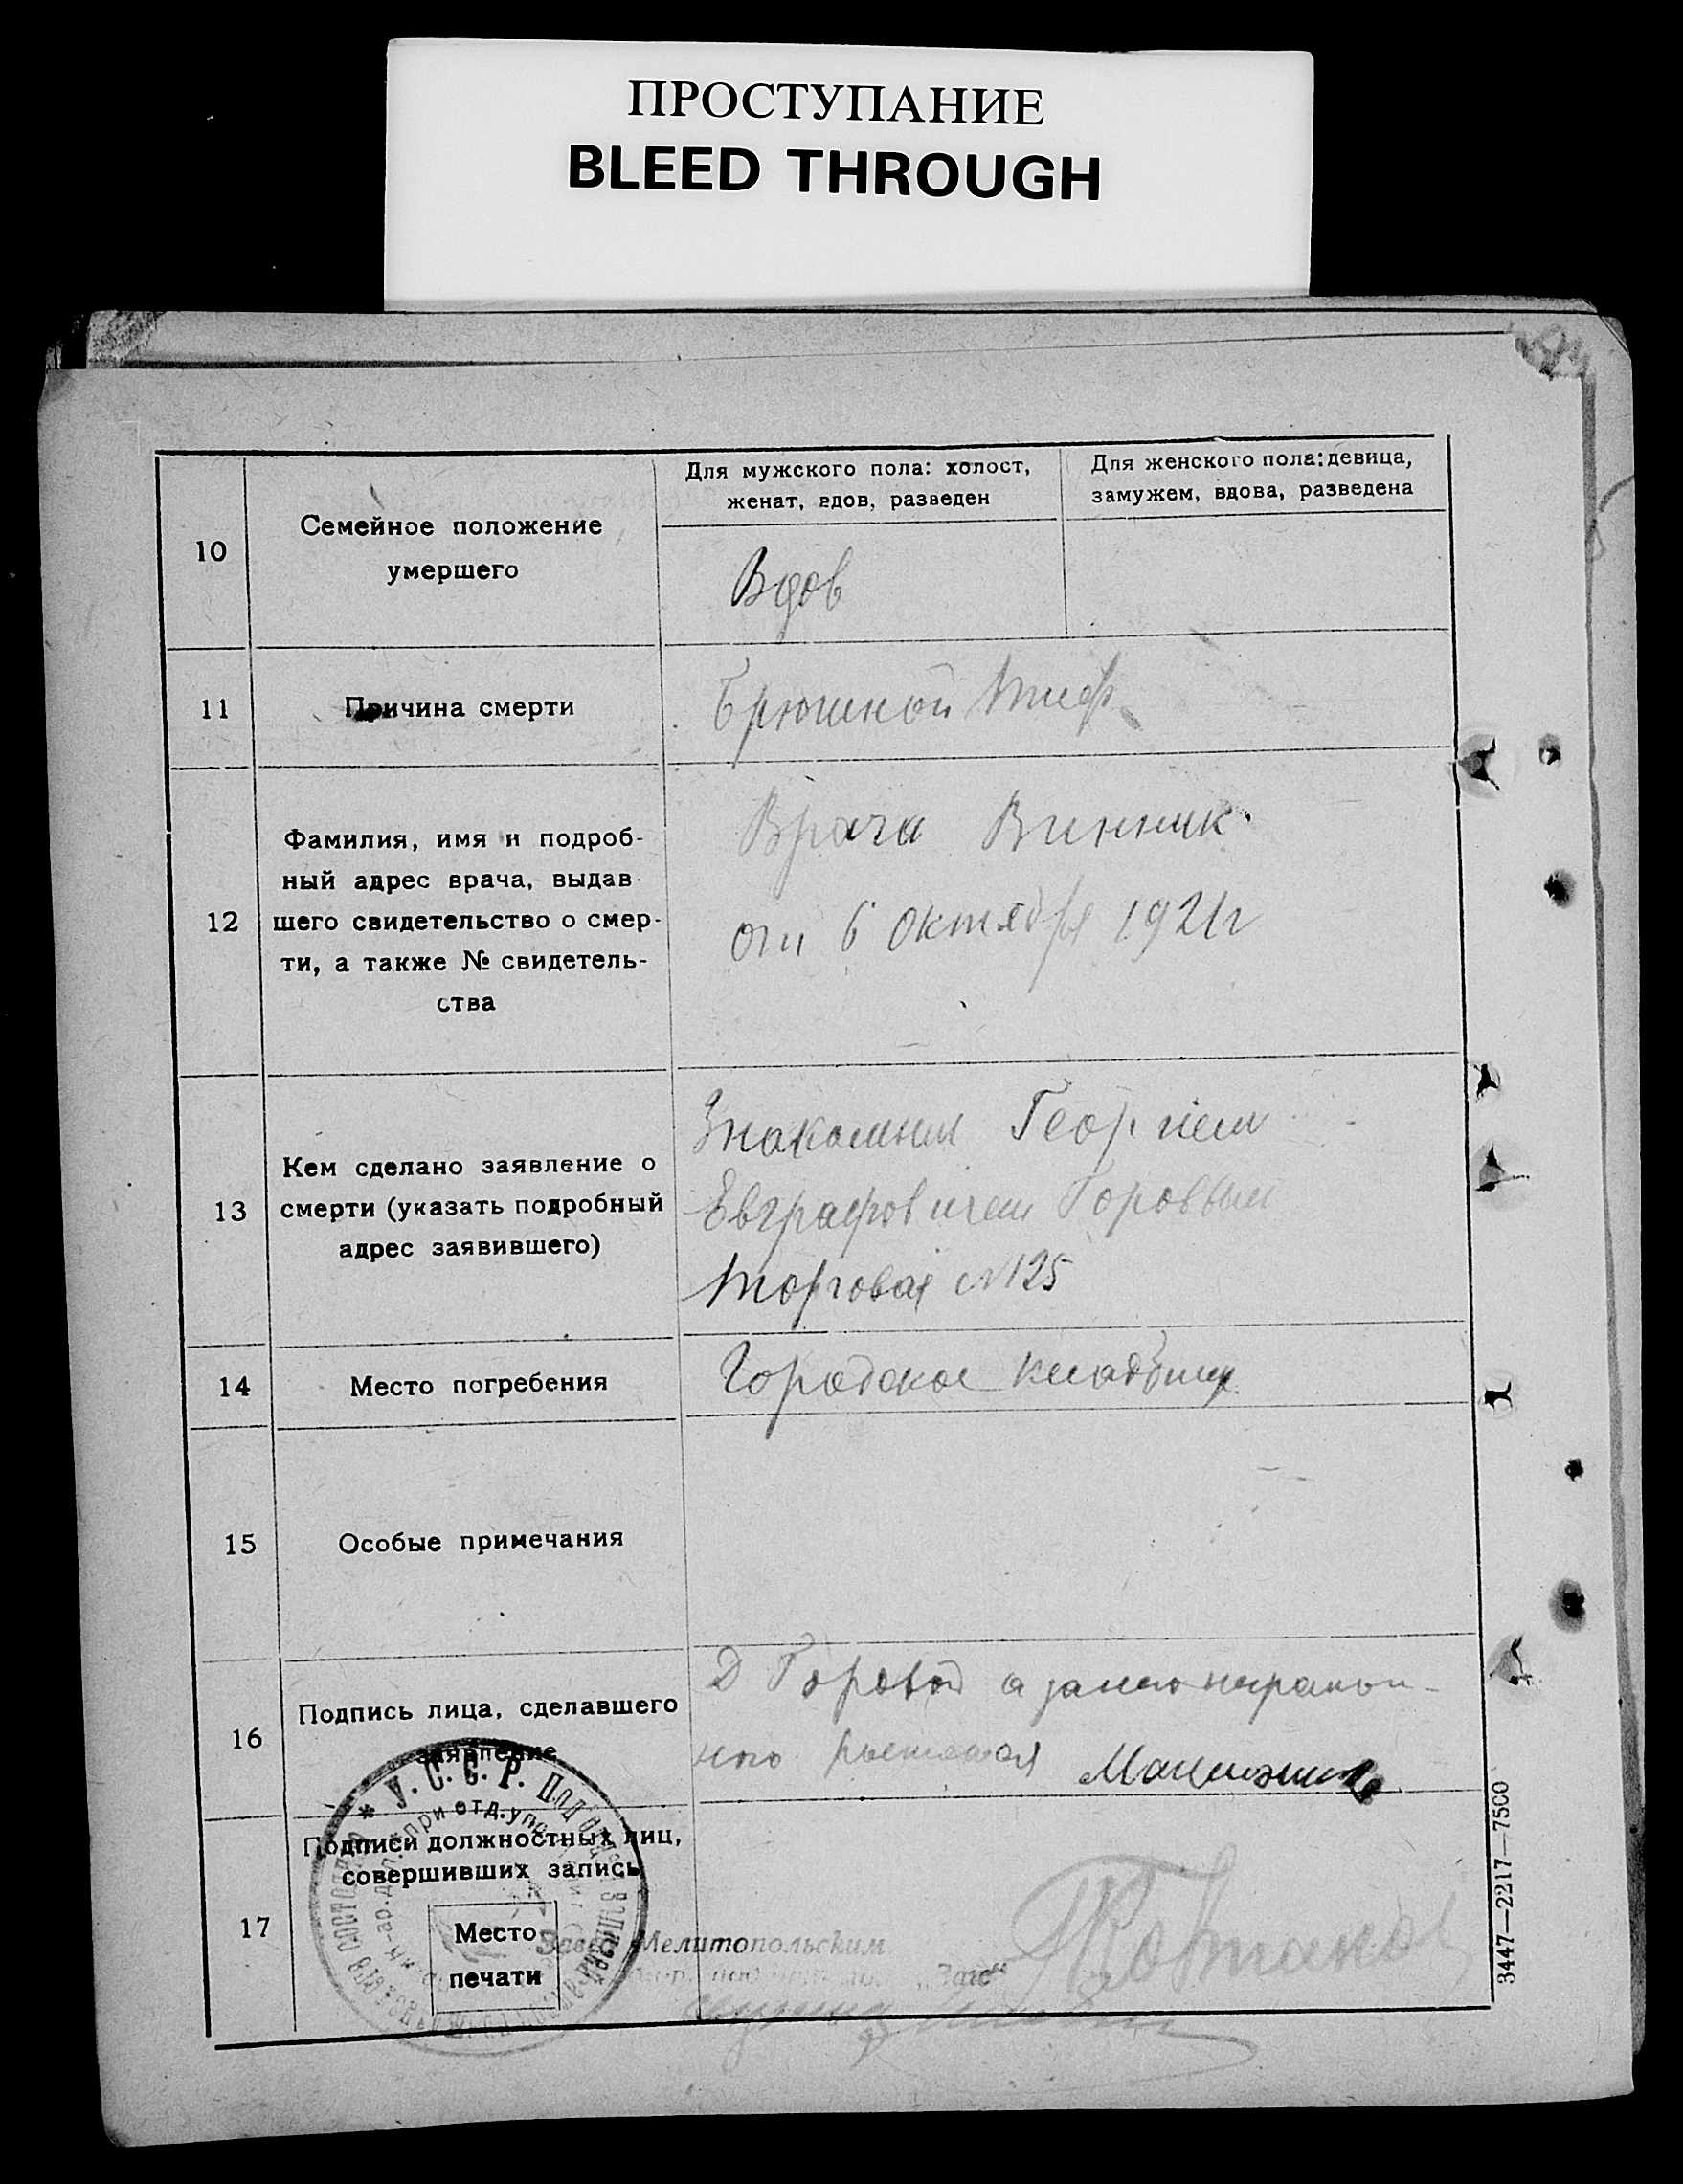 ПРОСТУПАНИЕ
BLEED THROUGH
10
Семейное положение
умершего
Для мужского пола: холост,
женат, вдов, разведен
Для женского пола: девица,
замужем, вдова, разведена
Вдов
11
Причина смерти
Брюшной тиф
12
Фамилия, имя и подроб-
ный адрес врача, выдав-
шего свидетельство о смер-
ти, а также № свидетель-
ства
Врача Винник
от 6 октября 1921г
13
Кем сделано заявление о
смерти (указать подробный
адрес заявившего)
Знакомым Георгiем
Евграфовичем Горовым
Торговая №125
14
Место погребения
Городское кладбище
15
Особые примечания
16
Подпись лица, сделавшего
заявление
Горовой а за него неграмот-
17
Подписи должностных лиц,
совершивших запись
Место
печати
У. С. С. Р.
при отд. упр.
Завед. Мелитопольским
„Загс"
3447—2217—7500